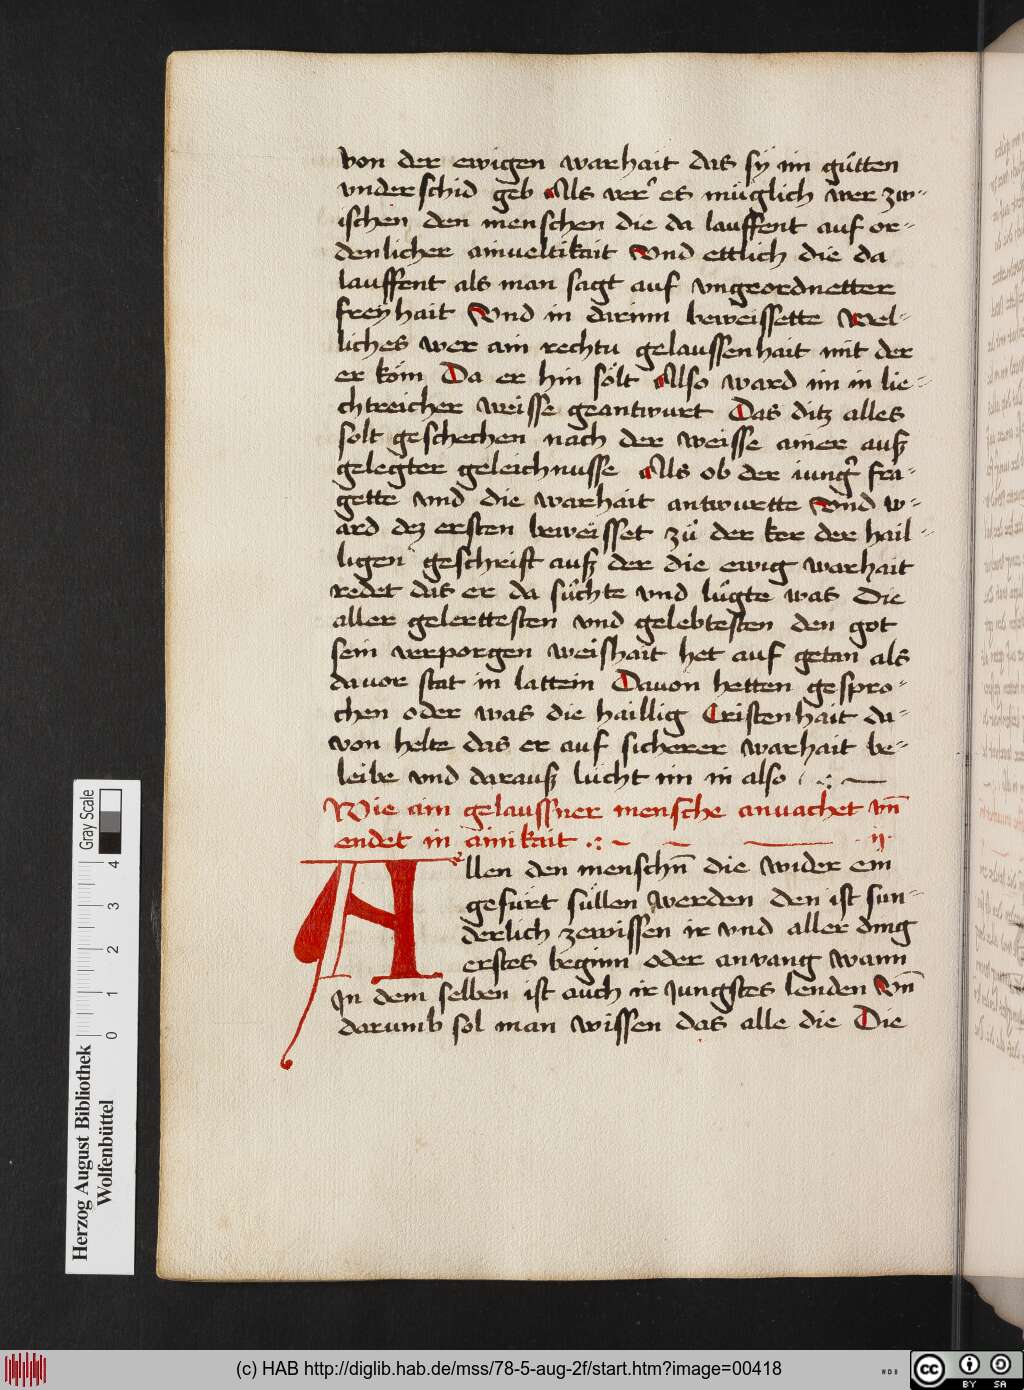 von der ewigen warhait das sÿ im gůtten
vnderschid geb Als ver' es müglich wer zw-
ischen den menschen die da lauffent auf or-
denlicher ainueltikait Vnd ettlich die da
lauffent als man sagt auf vngeordnetter
freÿhait Vnd in darinn beweissette wel-
liches wer ain rechtu gelaussenhait mit der
er köm Da er hin sölt Also ward im in lie-
chtreicher weisse geantwurt Das ditz alles
solt geschechen nach der weisse ainer auß
gelegter geleichnusse Als ob der iung' fra-
gette vnd die warhait antwurtte Vnd w-
ard dez ersten beweisset zů der ker der hail-
ligen geschrift auß der die ewig warhait
redet das er da sůchte vnd lůgte was Die
aller gelerttesten vnd gelebtesten den got
sein verporgen weishait het auf getan als
dauor stat in lattein Dauon hetten gespro-
chen oder was die haillig Cristenhait da-
von helte das er auf sicherer warhait be-
leibe vnd darauß lücht im in also
Wie ain gelaussner mensche anuachet vn̄
endet in ainikait ij
Allen den menschn̄ die wider ein
gefürt süllen werden den ist sun-
derlich zewissen ir vnd aller ding
erstes beginn oder anvang wann
Jn dem selben ist auch ir Jungstes lenden Vn̄
darumb sol man wissen das alle die Die
Herzog August Bibliothek
Wolfenbüttel
Gray Scale
0 1 2 3 4
(c) HAB http://diglib.hab.de/mss/78-5-aug-2f/start.htm?image=00418
WDB
cc BY SA